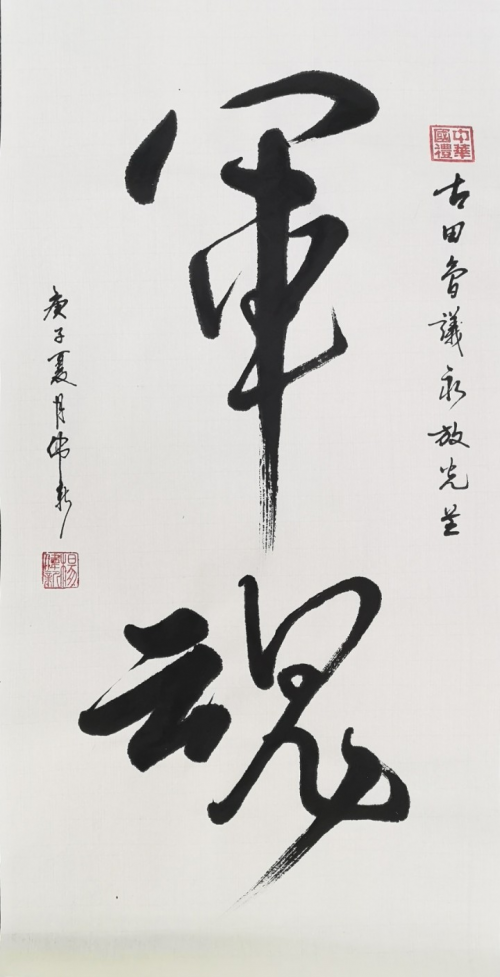 中華國禮
古田會議永放光芒
軍魂
庚子夏月偉新